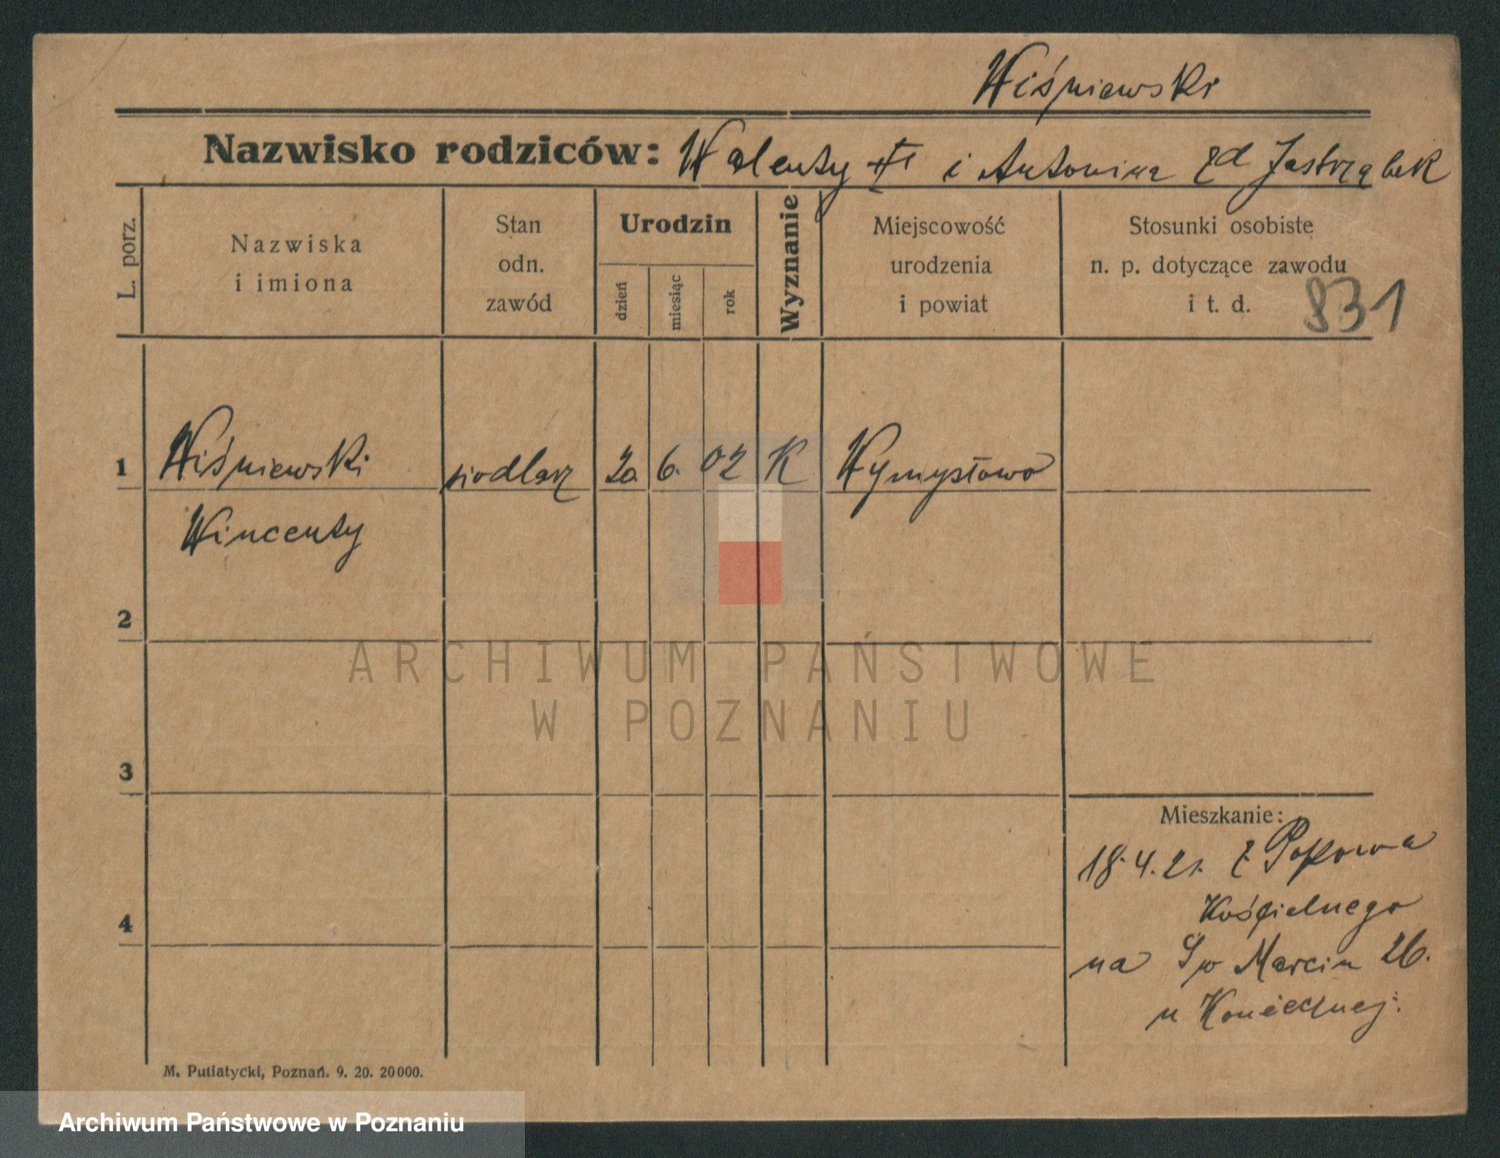 Wiśniewski
Nazwisko rodziców: Walenty i Antonina zd Jastrząbek
L. porz.
Nazwiska
i imiona
Stan
odn.
zawód
Urodzin
dzień
miesiąc
rok
Wyznanie
Miejscowość
urodzenia
i powiat
Stosunki osobiste
n. p. dotyczące zawodu
i t. d.
831
1 Wiśniewski siodlarz 20. 6. 02 K Wymysłowo
Wincenty
2
3
4
ARCHIWUM PAŃSTWOWE
W POZNANIU
Mieszkanie:
18.4.21. z Popowa
Kościelnego
na Św Marcin 26.
u Koniecznej.
M. Putiatycki, Poznań. 9. 20. 20000.
Archiwum Państwowe w Poznaniu